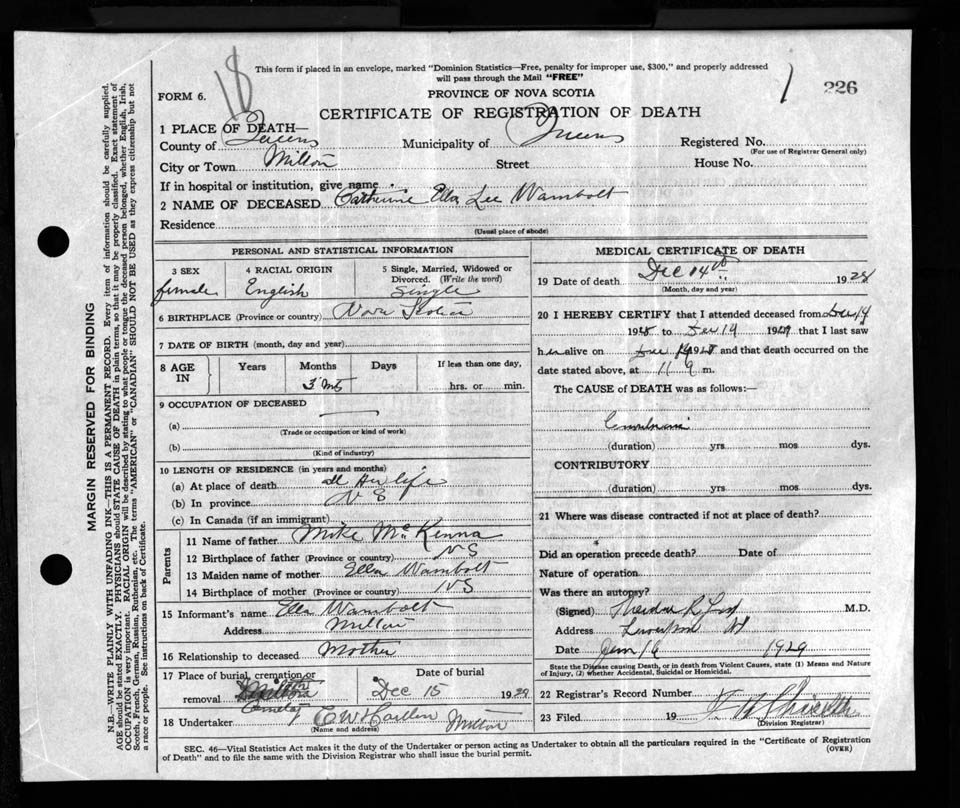 18
This form if placed in an envelope, marked "Dominion Statistics—Free, penalty for improper use, $300," and properly addressed
will pass through the Mail "FREE"
1 226
FORM 6.
PROVINCE OF NOVA SCOTIA
CERTIFICATE OF REGISTRATION OF DEATH
1 PLACE OF DEATH—
County of Queens Municipality of Queens Registered No.
(For use of Registrar General only)
City or Town Milton Street House No.
If in hospital or institution, give name
2 NAME OF DECEASED Catherine Ella Lee Wambolt
Residence
(Usual place of abode)
PERSONAL AND STATISTICAL INFORMATION
3 SEX
female
4 RACIAL ORIGIN
English
5 Single, Married, Widowed or
Divorced. (Write the word)
Single
6 BIRTHPLACE (Province or country) Nova Scotia
7 DATE OF BIRTH (month, day and year)
8 AGE
IN
Years
Months
3 Mts
Days
If less than one day,
hrs. or min.
9 OCCUPATION OF DECEASED
(a)
(Trade or occupation or kind of work)
(b)
(Kind of industry)
10 LENGTH OF RESIDENCE (in years and months)
(a) At place of death all her life
(b) In province N S
(c) In Canada (if an immigrant)
Parents
11 Name of father Mike McKenna
12 Birthplace of father (Province or country) NS
13 Maiden name of mother Ella Wambolt
14 Birthplace of mother (Province or country) NS
15 Informant's name Ella Wambolt
Address Milton
16 Relationship to deceased Mother
17 Place of burial, cremation or
removal Milton
Date of burial
Dec 15 1929
18 Undertaker C W Milton
(Name and address)
MEDICAL CERTIFICATE OF DEATH
19 Date of death Dec 14th 1928
(Month, day and year)
20 I HEREBY CERTIFY that I attended deceased from Dec 14
1928 to Dec 14 1929 that I last saw
her alive on Dec 14 1928 and that death occurred on the
date stated above, at 11 m.
The CAUSE of DEATH was as follows:—
(duration) yrs mos dys.
CONTRIBUTORY
(duration) yrs mos dys.
21 Where was disease contracted if not at place of death?
Did an operation precede death? Date of
Nature of operation
Was there an autopsy?
(Signed) Theodore R. Ford M.D.
Address Liverpool NS
Date Jan 16 1929
State the Disease causing Death, or in death from Violent Causes, state (1) Means and Nature
of Injury, (2) whether Accidental, Suicidal or Homicidal.
22 Registrar's Record Number
23 Filed 19
(Division Registrar)
SEC. 46—Vital Statistics Act makes it the duty of the Undertaker or person acting as Undertaker to obtain all the particulars required in the "Certificate of Registration
of Death" and to file the same with the Division Registrar who shall issue the burial permit.
(OVER)
MARGIN RESERVED FOR BINDING
N.B.—WRITE PLAINLY WITH UNFADING INK—THIS IS A PERMANENT RECORD. Every item of information should be carefully supplied.
AGE should be stated EXACTLY. PHYSICIANS should STATE CAUSE OF DEATH in plain terms, so that it may be properly classified. Exact statement of
OCCUPATION is very important. RACIAL ORIGIN will be described by stating to what people or tongue the deceased person belonged, whether English, Irish,
Scotch, French, German, Russian, Ruthenian, etc. The terms "AMERICAN" or "CANADIAN" SHOULD NOT BE USED as they express citizenship but not
a race or people. See instructions on back of Certificate.